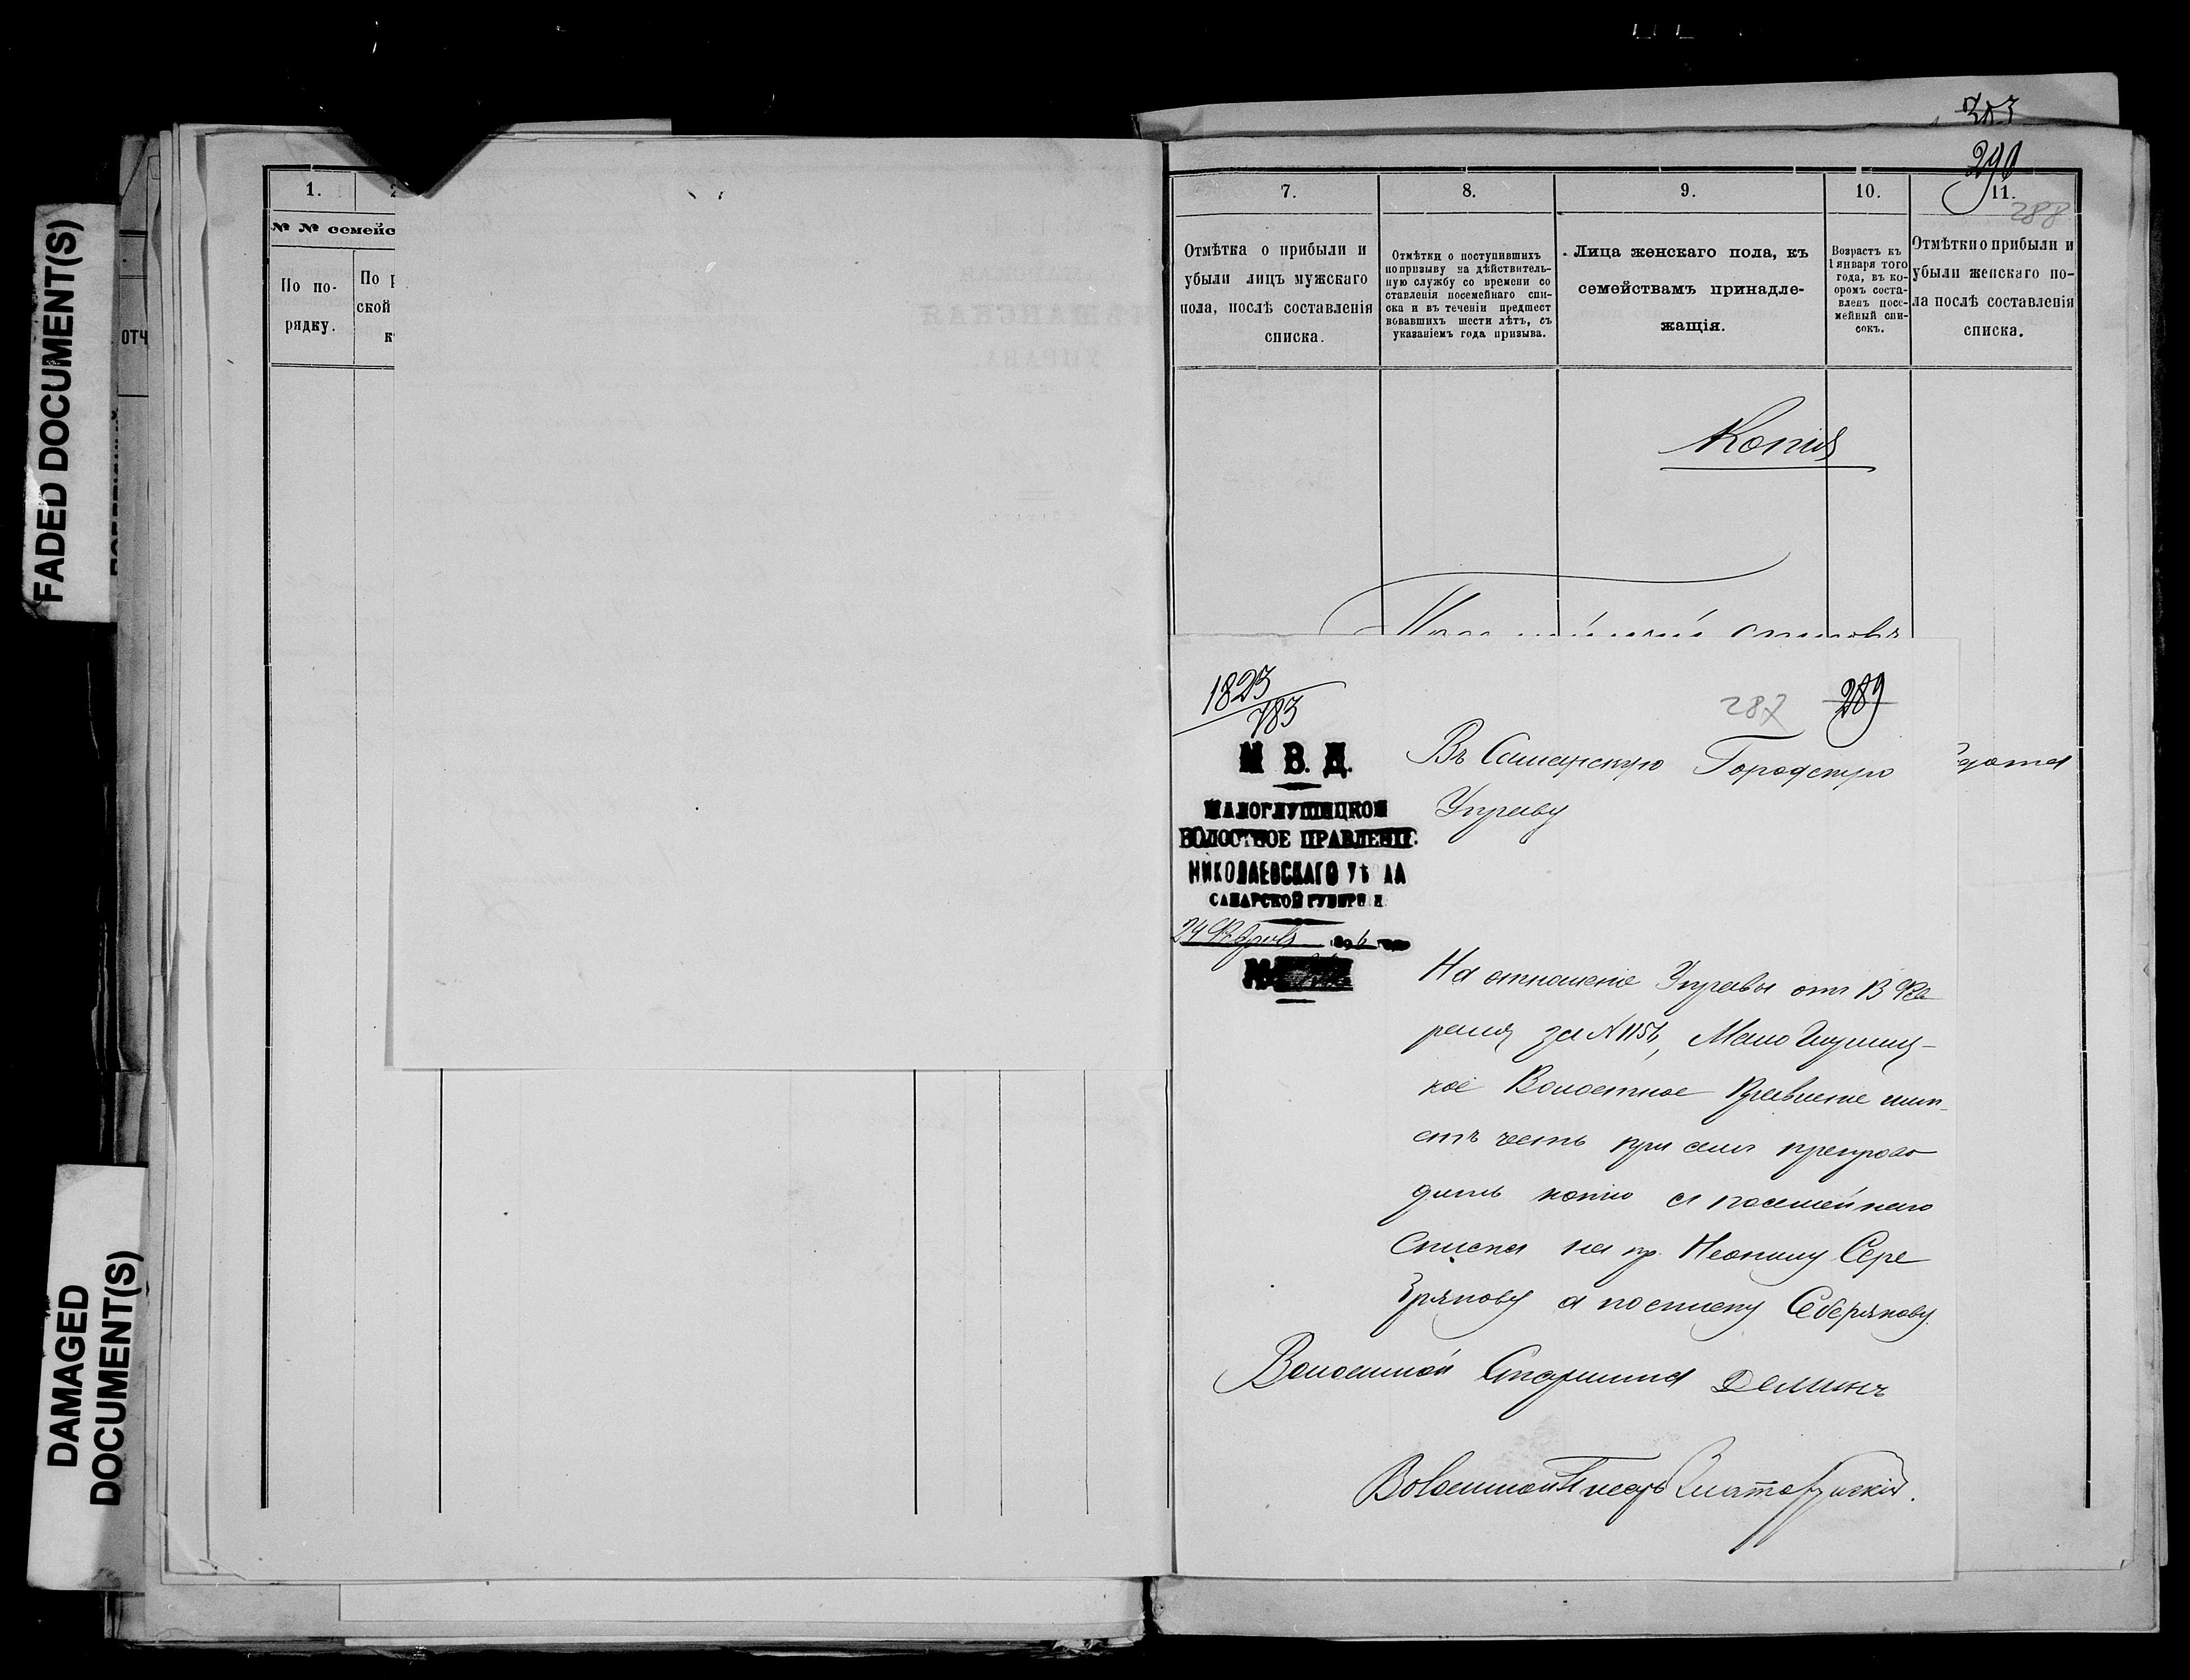 FADED DOCUMENT(S)
DAMAGED
DOCUMENT(S)
ОТЧ
1.
№ № семейс
По по-
рядку.
По р
ской
303
290
288
7.
8.
9.
10.
11.
Отмѣтка о прибыли и
убыли лицъ мужскаго
пола, послѣ составленія
списка.
Отмѣтки о поступившихъ
по призыву на дѣйствитель-
ную службу со времени со
ставленія посемейнаго спи-
ска и въ теченіи предшест
вовавшихъ шести лѣтъ, съ
указаніемъ года призыва.
Лица женскаго пола, къ
семействамъ принадле-
жащія.
Возрастъ къ
1 января того
года, въ ко-
оромъ соста-
вленъ посе-
мейный спи-
сокъ.
Отмѣтки о прибыли и
убыли женскаго по-
ла послѣ составленія
списка.
Копия
1823
783
287 289
М. В. Д.
МАЛОГЛУШИЦКОЕ
ВОЛОСТНОЕ ПРАВЛЕНІЕ.
НИКОЛАЕВСКАГО УѢЗДА
САМАРСКОЙ ГУБЕРНІИ
№
Въ Самарскую Городскую
Управу
На отношеніе Управы отъ 13 Фев
раля за № 1156, Мало Глушиц-
кое Волостное Правленіе имѣ-
етъ честь при семъ препрово
дить копію съ посемейнаго
списка на кр.
а по списку Себерякову.
Волостной Старшина Деминъ
Волостной Писарь